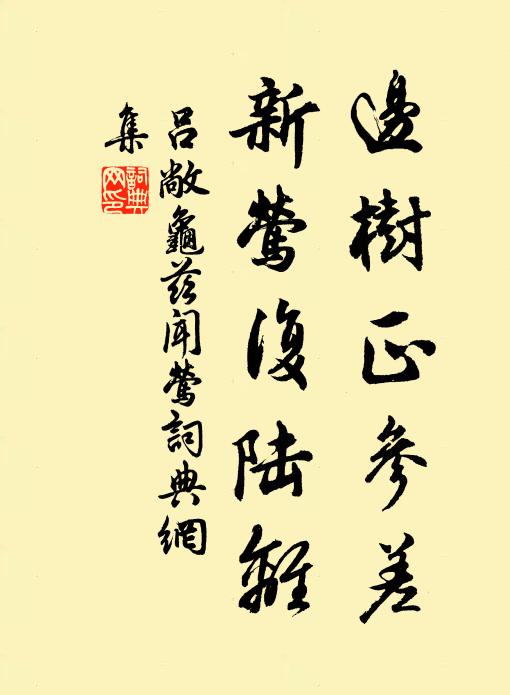 邊樹正參差
新鶯復陸離
呂敞龜茲聞鶯詞典網
集
詞典
网印